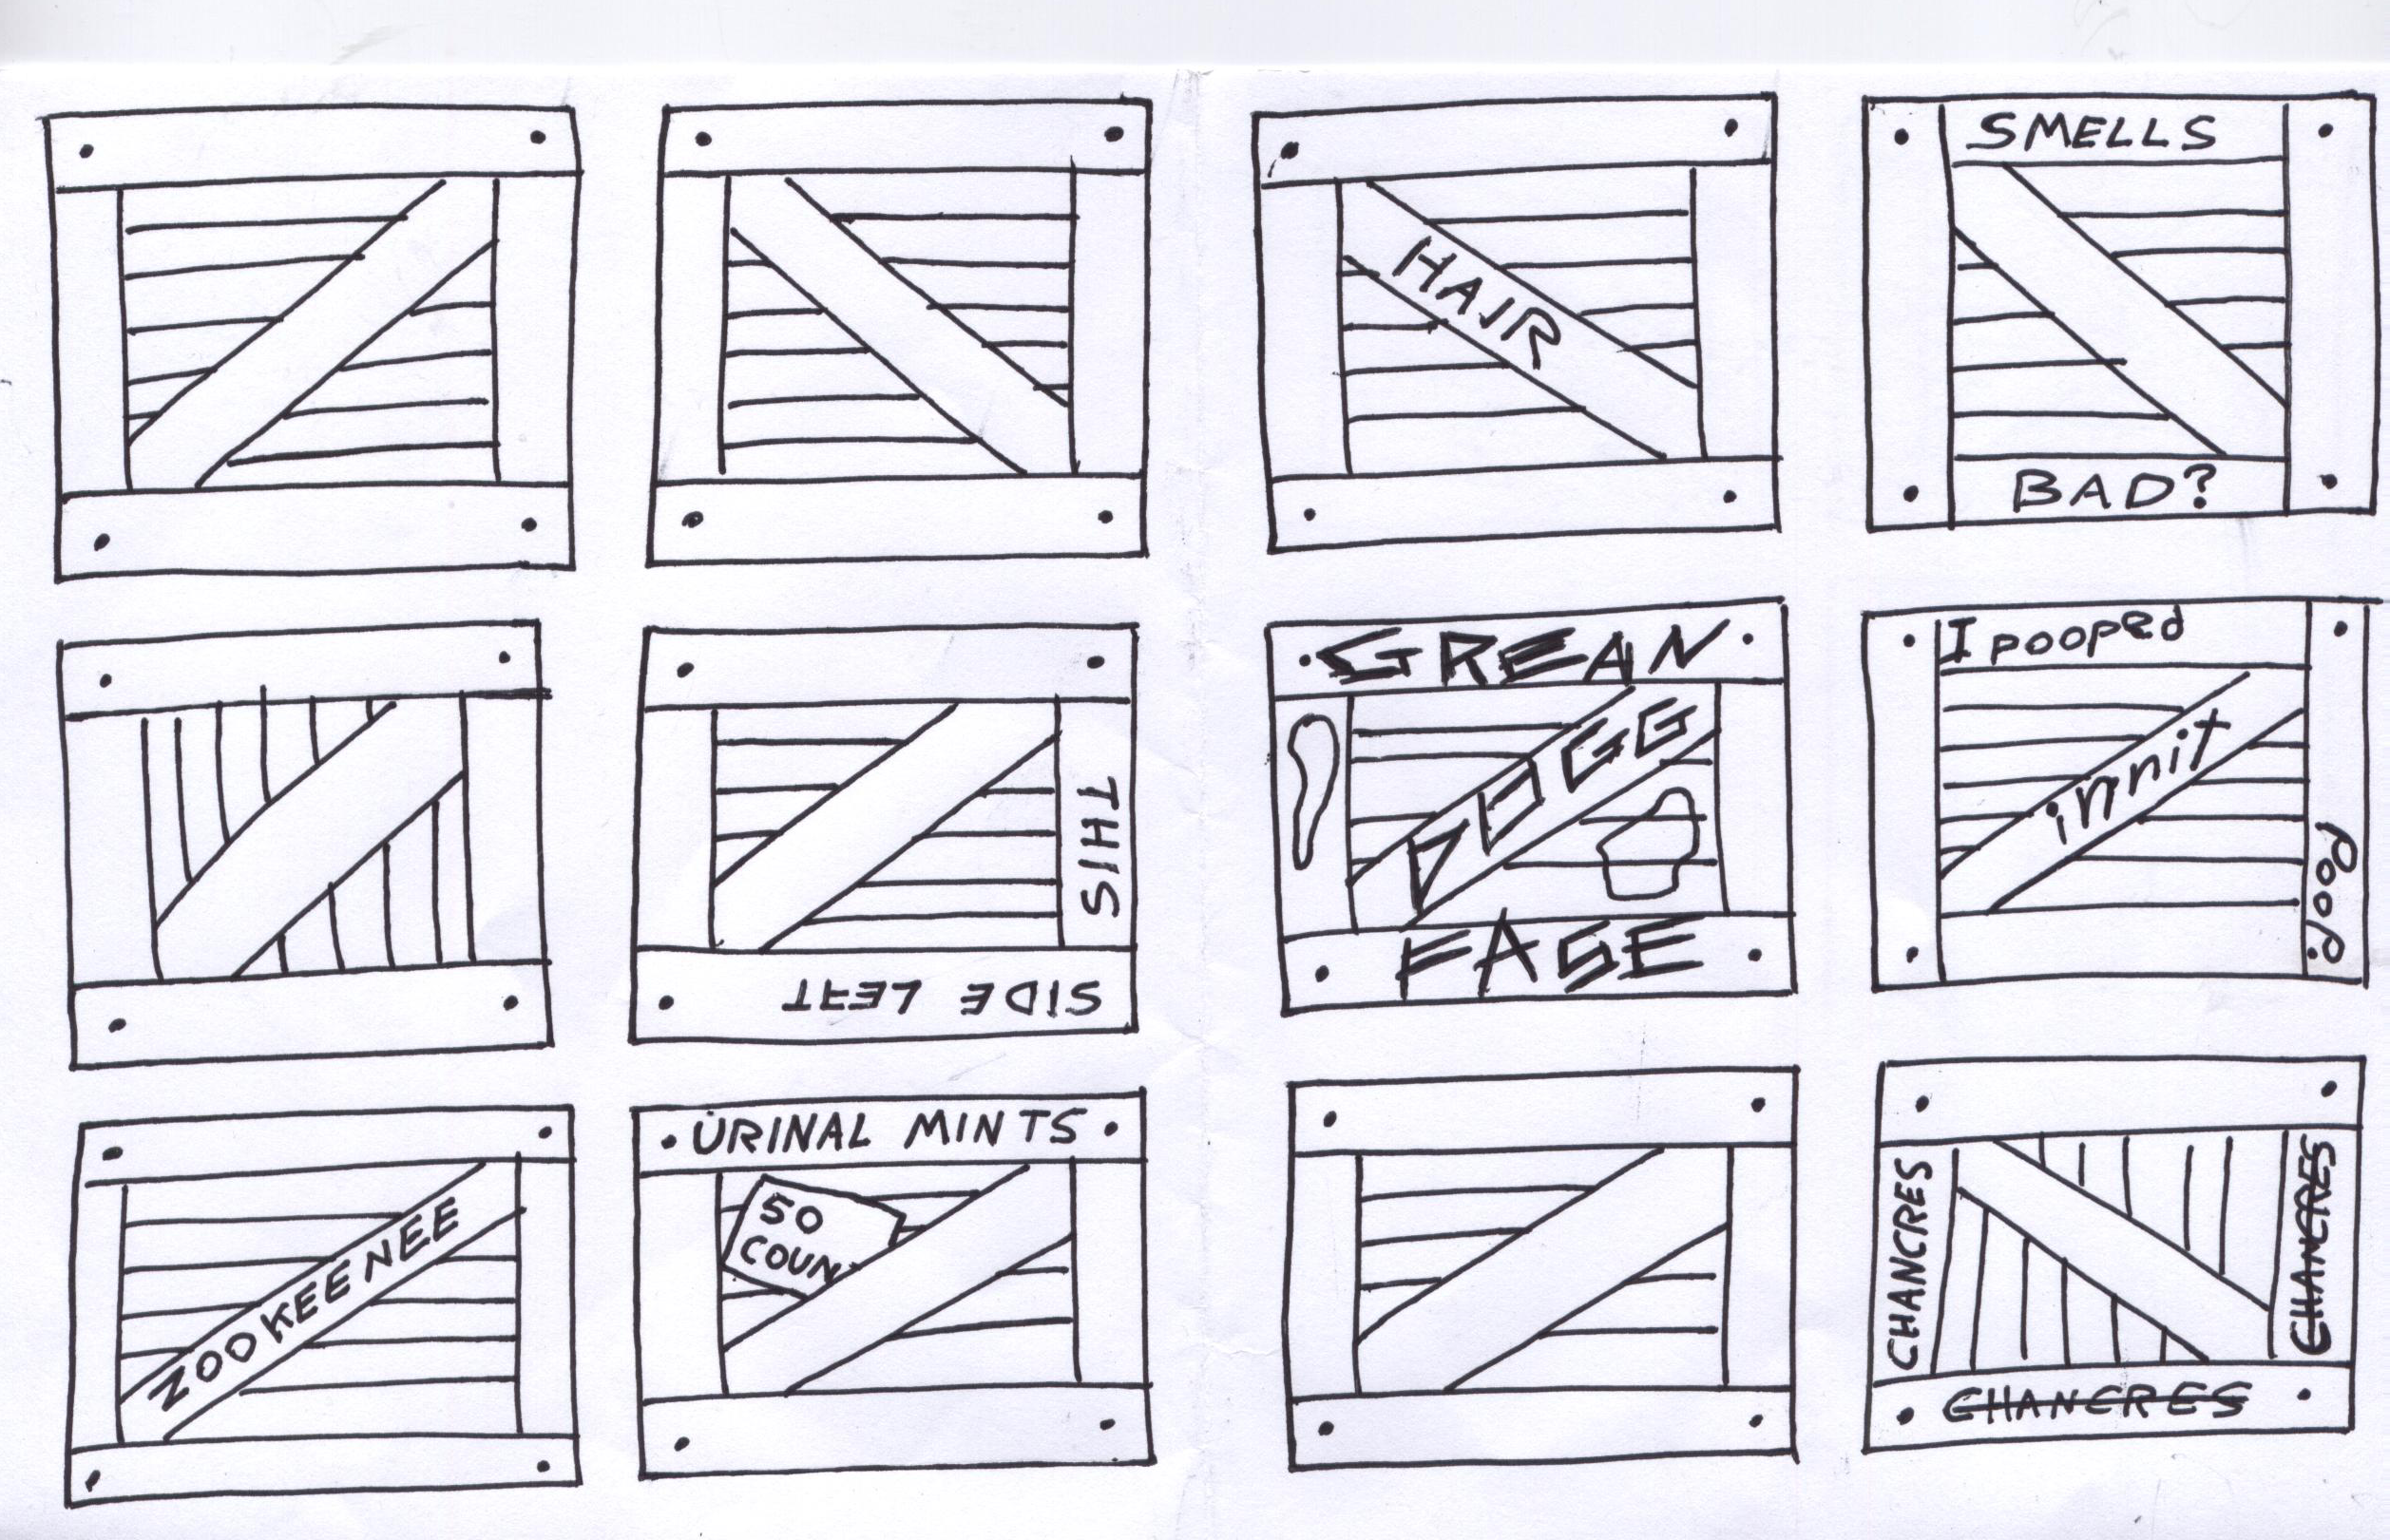 HAIR
SMELLS
BAD?
THIS
SIDE LEFT
GREAN
DOGG
FASE
I pooped
innit
Poop.
ZOOKEENEE
URINAL MINTS
50
COUN
CHANCRES
CHANCRES
CHANCRES